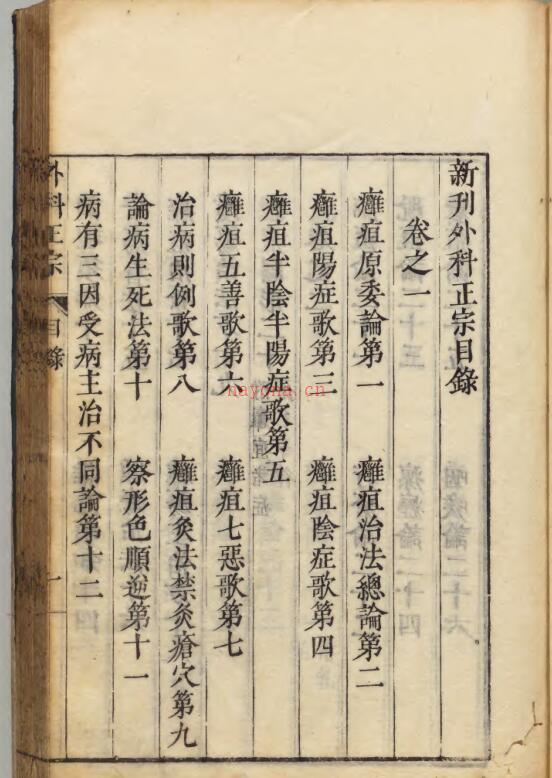 新刊外科正宗目錄
卷之一
癰疽原委論第一 癰疽治法總論第二
癰疽陽症歌第三 癰疽陰症歌第四
癰疽半陰半陽症歌第五
癰疽五善歌第六 癰疽七惡歌第七
治病則例歌第八 癰疽灸法禁灸瘡穴第九
論病生死法第十 察形色順逆第十一
病有三因受病主治不同論第十二
外科正宗 目錄 一
nayona.cn